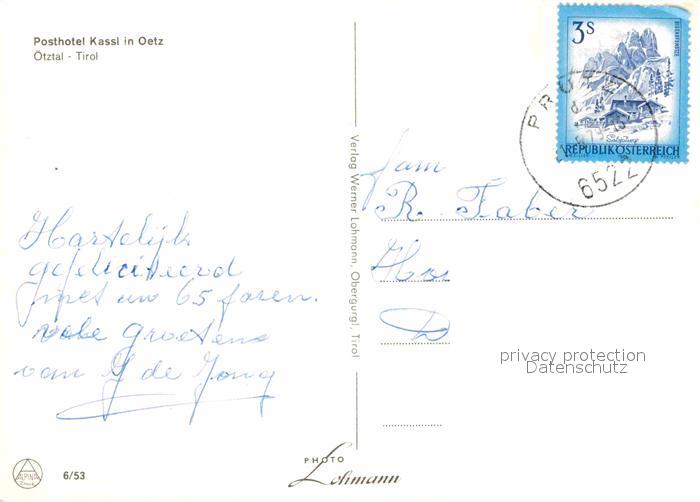 Posthotel Kassl in Oetz
Ötztal - Tirol
Hartelijk
gefeliciteerd
met uw 65 jaren.
vele groetens
van J de Jong
ALPINA
6/53
Verlag Werner Lohmann, Obergurgl, Tirol
PHOTO
Lohmann
3s
BISCHOFSMÜTZE
Salzburg
REPUBLIK ÖSTERREICH
PRUTZ
6522
fam
R. Faber
privacy protection
Datenschutz